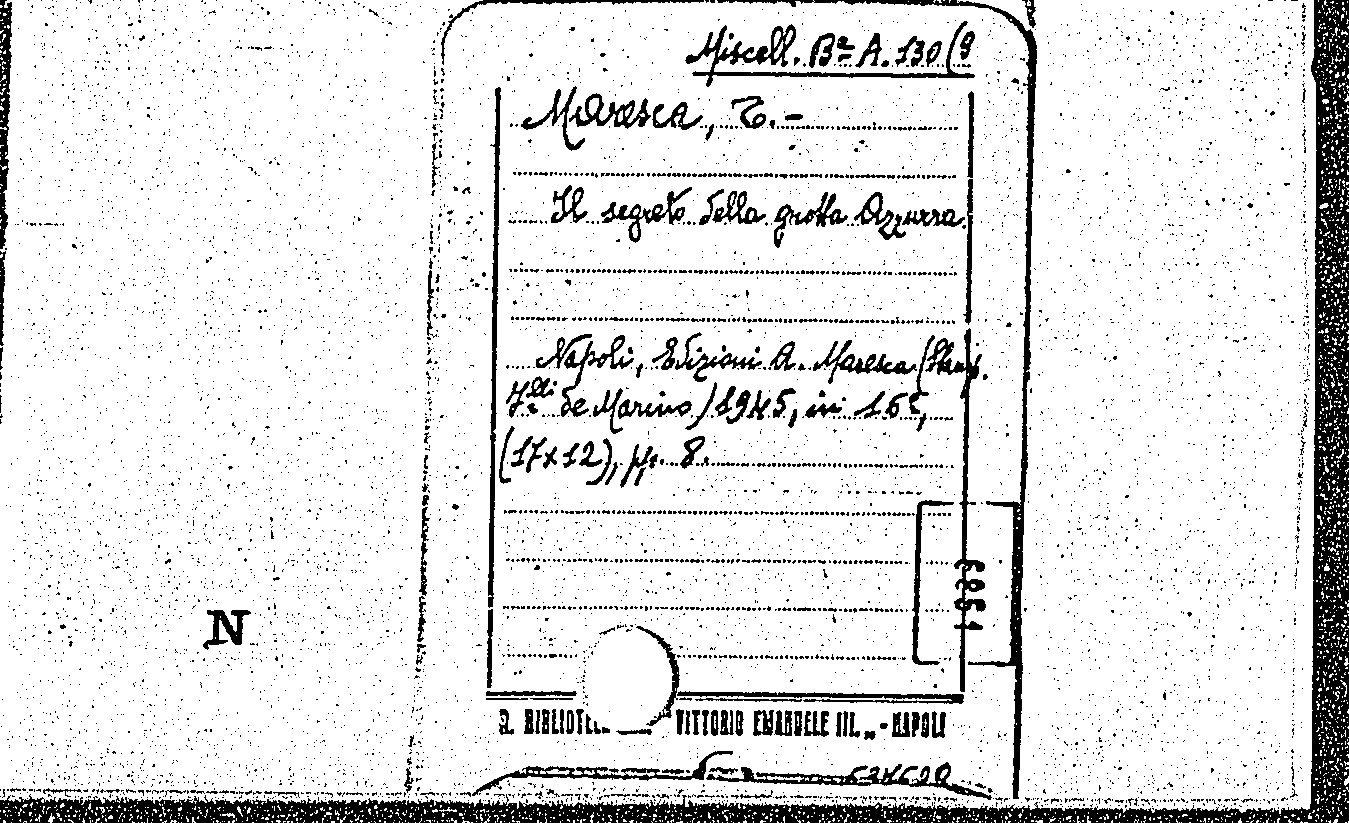 Miscell. Bª A. 130 (9
Maresca, T.-
Il segreto della grotta Azzurra.
Napoli, Edizioni A. Maresca (Stamp.
F.lli de Marino) 1945, in 16º,
(17x12), pp. 8.
N
R. BIBLIOTE VITTORIO EMANUELE III. „ - NAPOLI